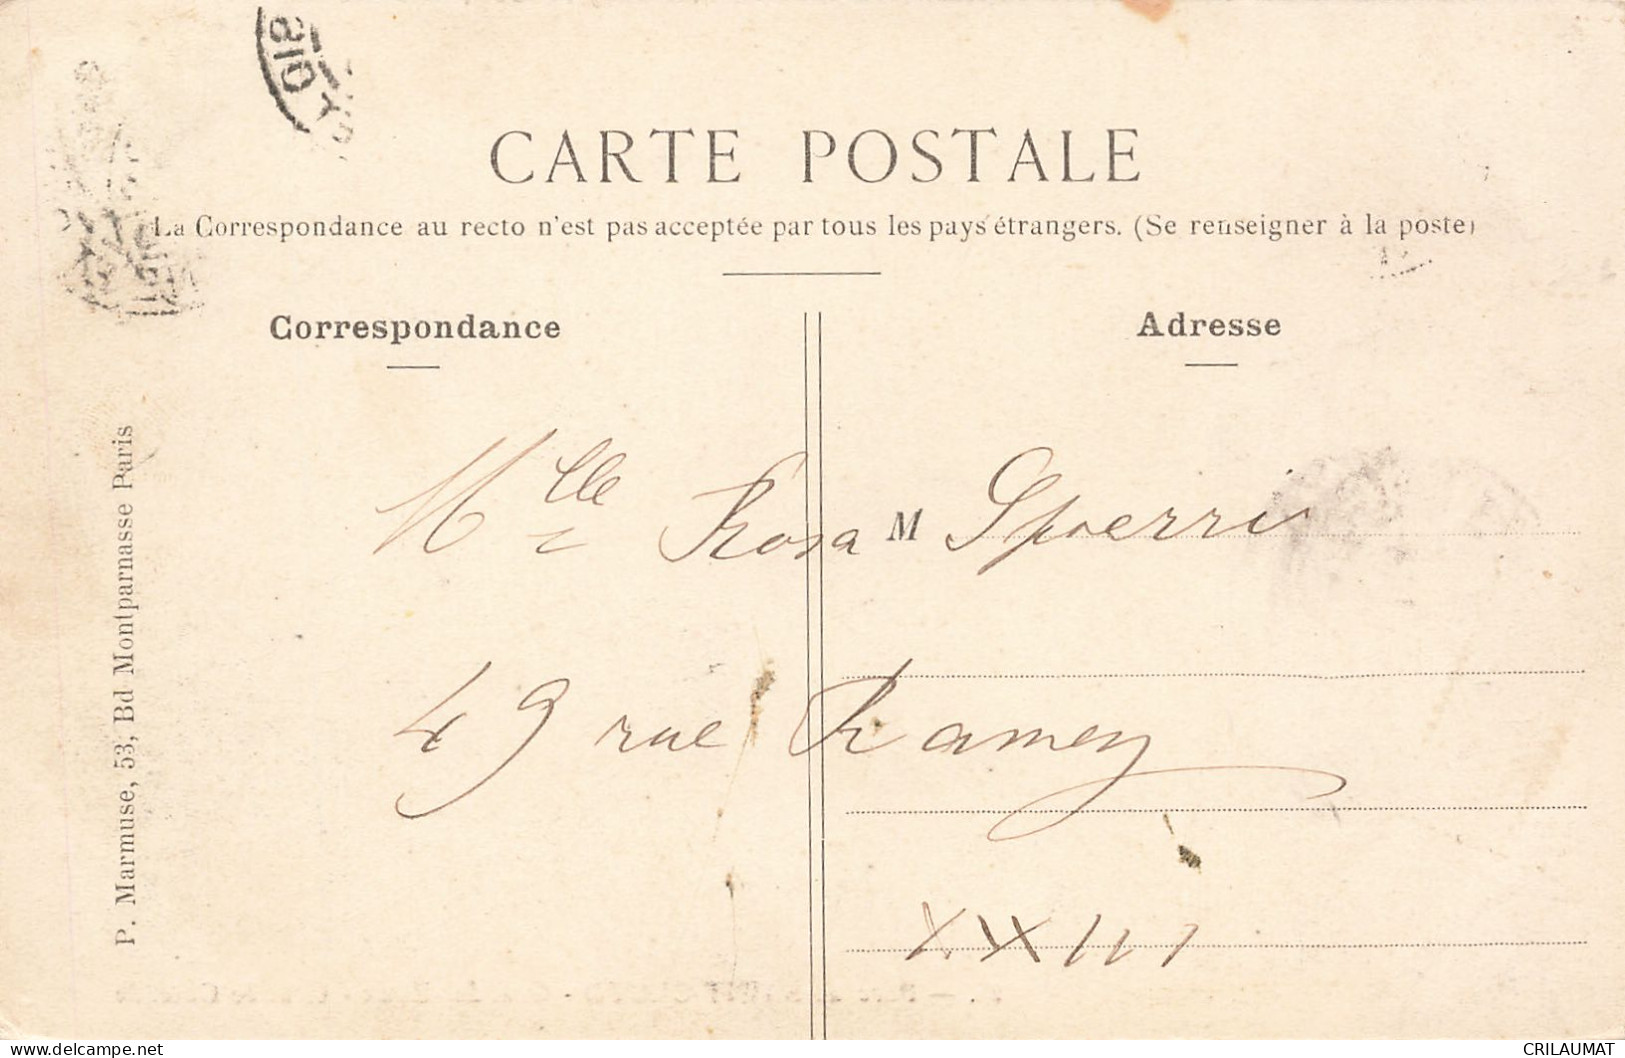 CARTE POSTALE
La Correspondance au recto n'est pas acceptée par tous les pays étrangers. (Se renseigner à la poste)
Correspondance
Adresse
P. Marmuse, 53, Bd Montparnasse Paris
Mlle Rosa M Spoerri
49 rue Ramey
XXIII
CRILAUMAT